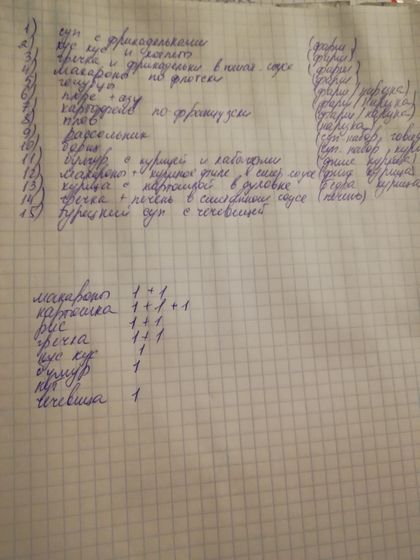 1) суп с фрикадельками (фарш)
2) кус кус и (фарш)
3) гречка и фрикадельки в соусе (фарш)
4) макароны по флотски (фарш)
5) (фарш)
6) пюре + азу (фарш/вырезка)
7) картофель по-французски (фарш/вырезка)
8) плов (вырезка)
9) рассольник (суп. набор,
10) борщ (суп. набор
11) булгур с курицей и кабачками (филе курица
12) макароны + куриное филе в слив. соусе (филе курица
13) курица с картошкой в духовке (бедра курица
14) гречка + печень в сметанном соусе (печень)
15) турецкий суп с чечевицей
макароны 1 + 1
картошка 1 + 1 + 1
рис 1 + 1
гречка 1 + 1
кус кус 1
булгур 1
нут
чечевица 1